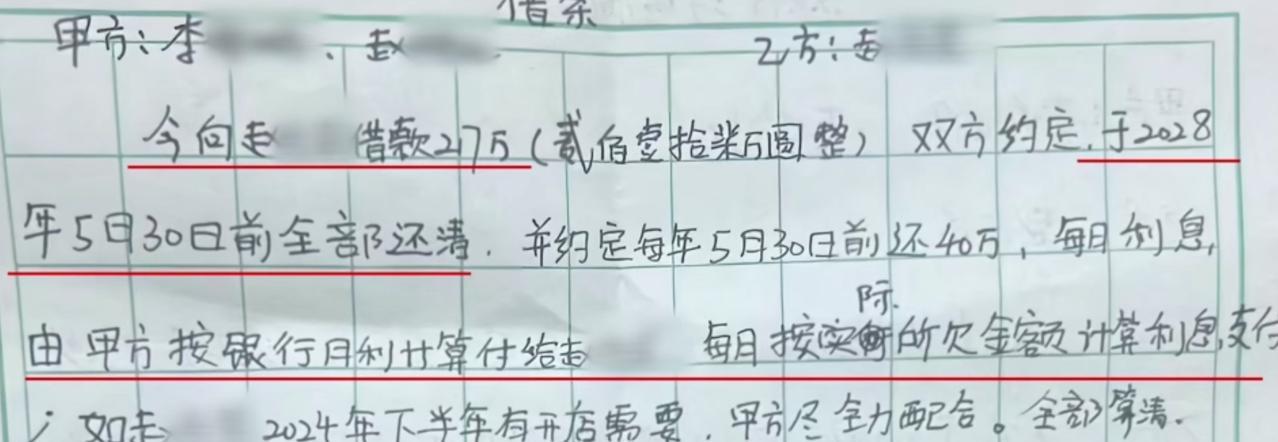 借条
甲方:李 、赵 乙方:赵
今向赵 借款217万(贰佰壹拾柒万圆整) 双方约定,于2028
年5月30日前全部还清.并约定每年5月30日前还40万,每月利息,
际
由甲方按银行月利计算付给赵 每月按实所欠金额计算利息,支付
;如赵 2024年下半年有开店需要,甲方尽全力配合。全部算清.